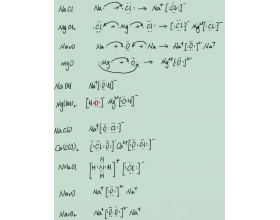 NaCl Na· ·Cl: → Na⁺[:Cl:]⁻
MgCl₂ :Cl· ·Mg· ·Cl: → [:Cl:]⁻ Mg²⁺[:Cl:]⁻
Na₂O Na· ·O· ·Na → Na⁺[:O:]²⁻ Na⁺
MgO :Mg ·O· → Mg²⁺[:O:]²⁻
NaOH Na⁺[:O:H]⁻
Mg(OH)₂ [H:O:]⁻ Mg²⁺[:O:H]⁻
NaClO Na⁺[:O:Cl:]⁻
Ca(ClO)₂ [:Cl:O:]⁻ Ca²⁺[:O:Cl:]⁻
NH₄Cl [H:N:H]⁺ [:Cl:]⁻
H
H
Na⁺[:O:]²⁻ Na⁺
Na₂O₂ Na⁺[:O:O:]²⁻ Na⁺